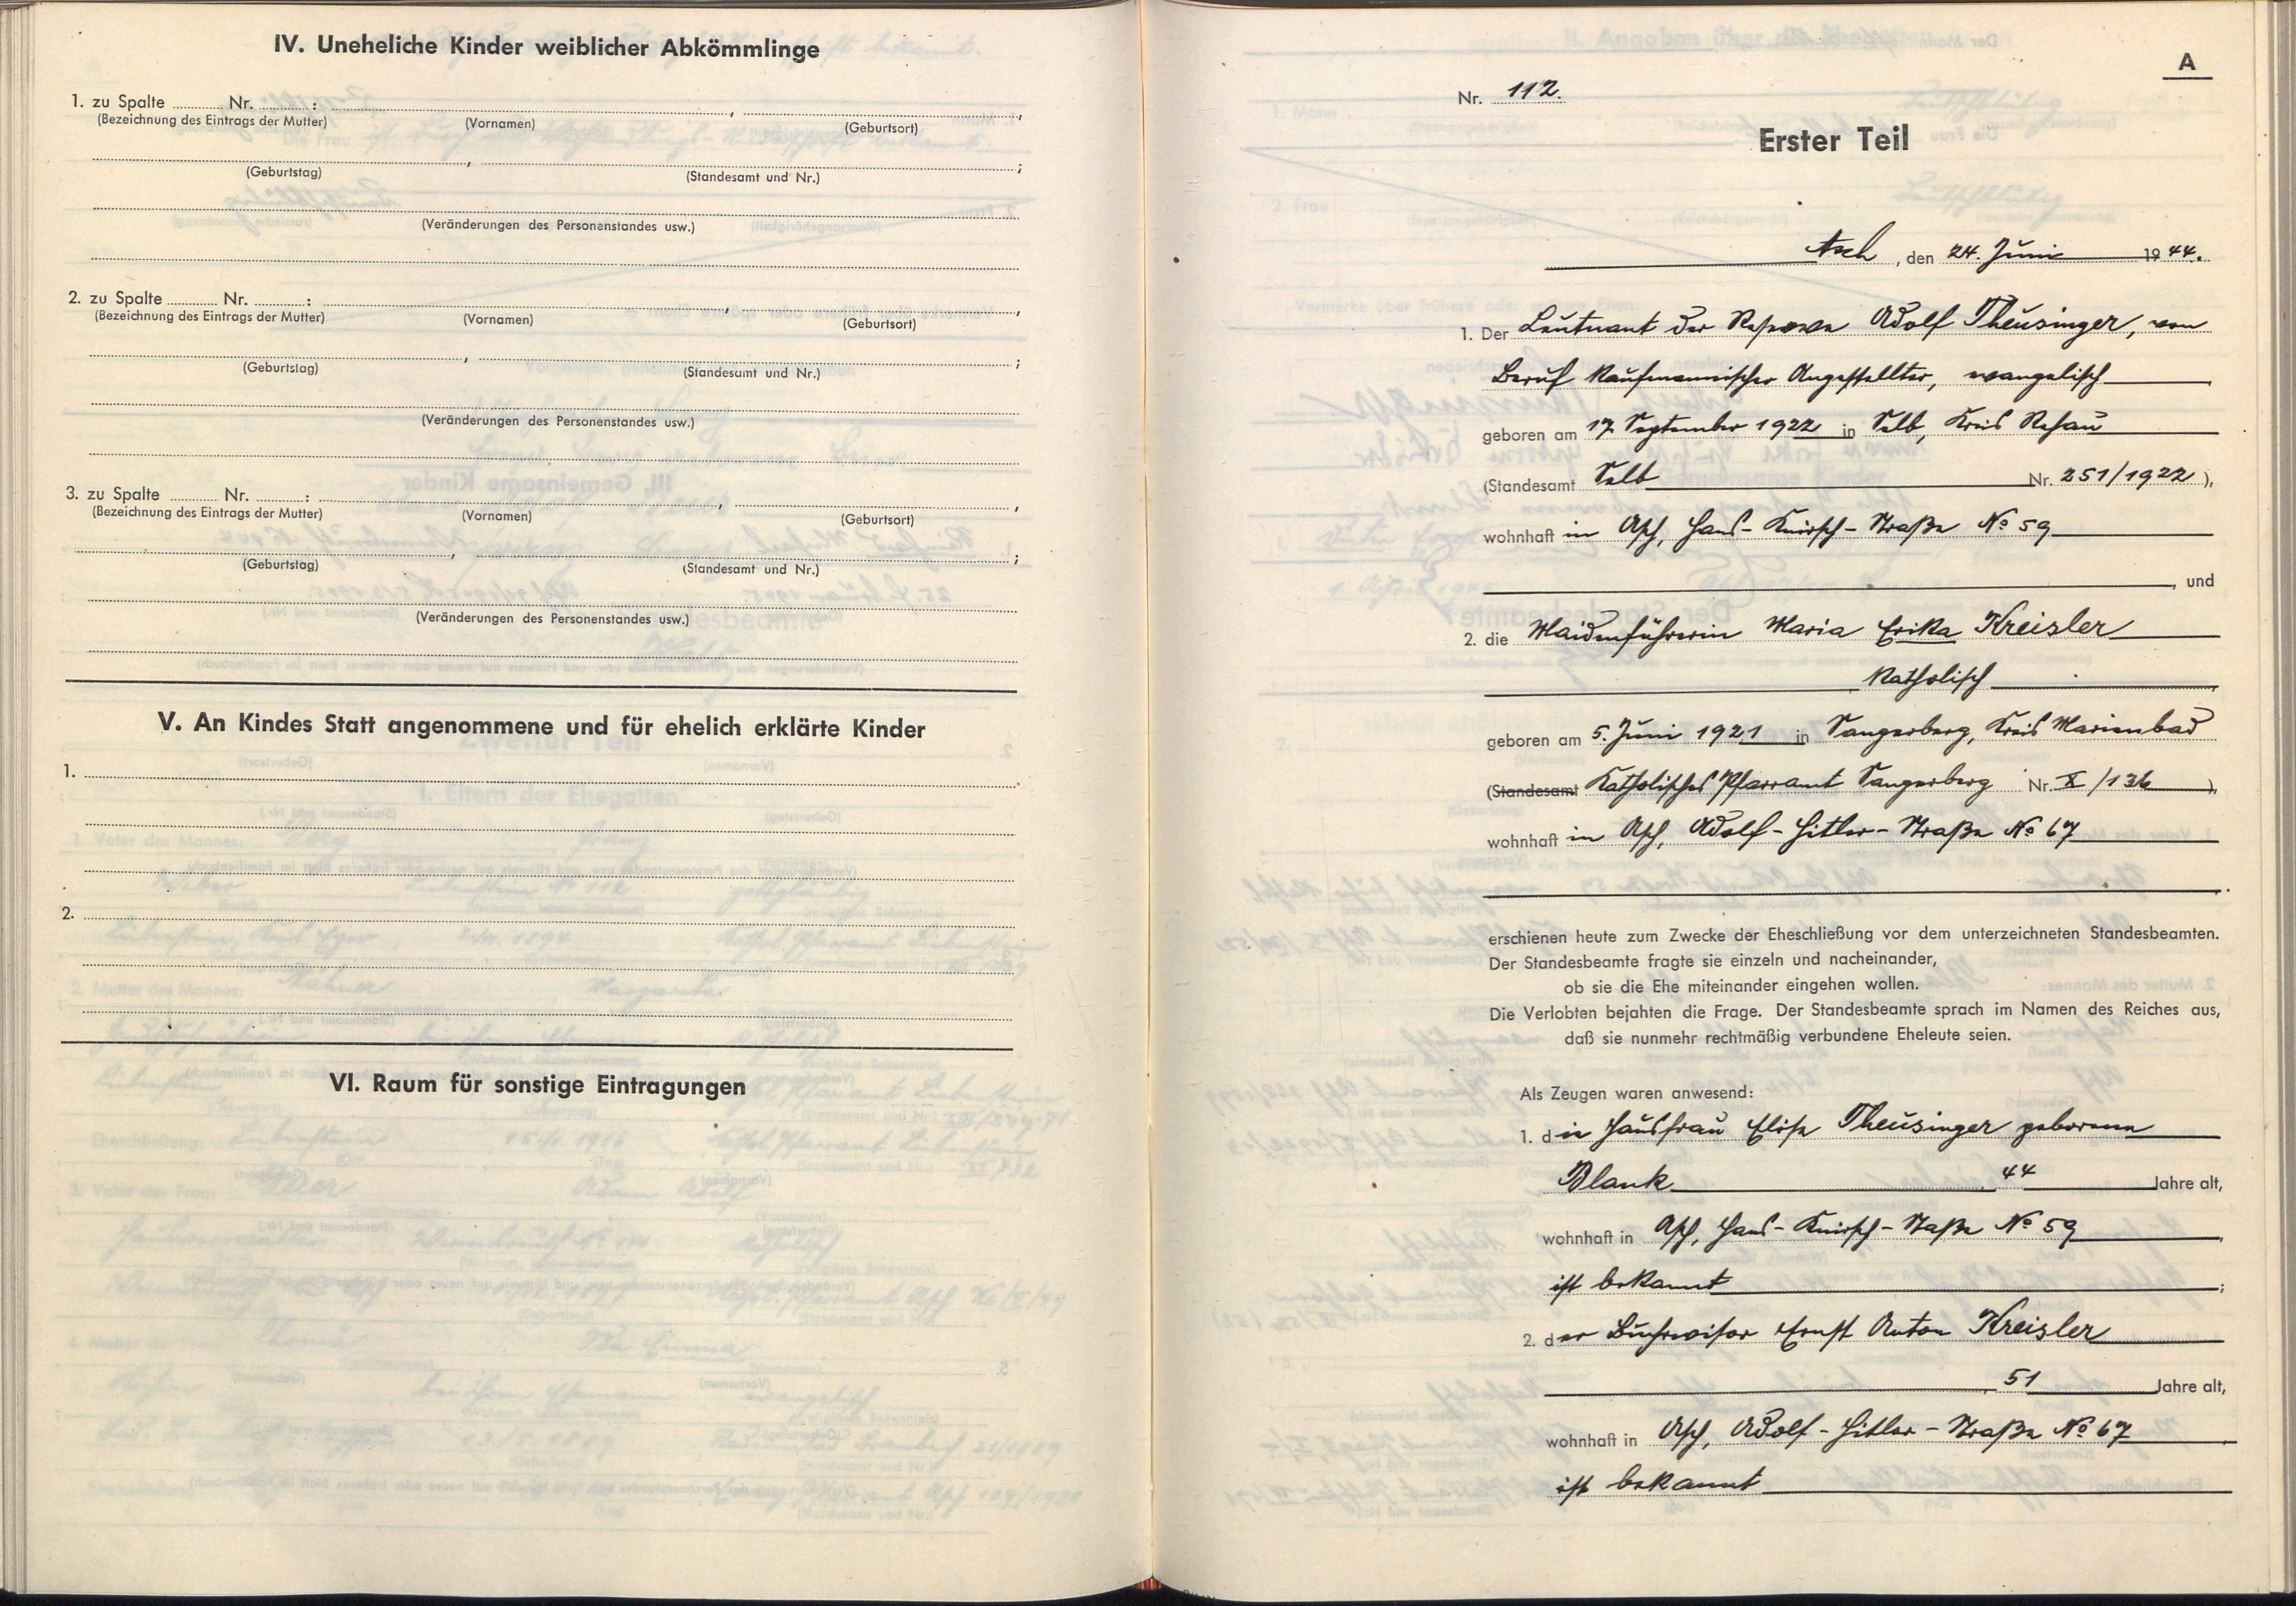 IV. Uneheliche Kinder weiblicher Abkömmlinge
1. zu Spalte ......... Nr. ......... : ........., .........,
(Bezeichnung des Eintrags der Mutter) (Vornamen) (Geburtsort)
........., ......... ;
(Geburtstag) (Standesamt und Nr.)
(Veränderungen des Personenstandes usw.)
2. zu Spalte ......... Nr. ......... : ........., .........,
(Bezeichnung des Eintrags der Mutter) (Vornamen) (Geburtsort)
........., ......... ;
(Geburtstag) (Standesamt und Nr.)
(Veränderungen des Personenstandes usw.)
3. zu Spalte ......... Nr. ......... : ........., .........,
(Bezeichnung des Eintrags der Mutter) (Vornamen) (Geburtsort)
........., ......... ;
(Geburtstag) (Standesamt und Nr.)
(Veränderungen des Personenstandes usw.)
V. An Kindes Statt angenommene und für ehelich erklärte Kinder
1.
2.
VI. Raum für sonstige Eintragungen
A
Nr. 112.
Erster Teil
Asch, den 24. Juni 1944.
1. Der Leutnant der Reserve Adolf Theusinger, von
Beruf kaufmännischer Angestellter, evangelisch,
geboren am 17. September 1922 in Selb, Kreis Rehau
(Standesamt Selb Nr. 251/1922),
wohnhaft in Asch, Hans-Knirsch-Straße No 59
, und
2. die Maidenführerin Maria Erika Kreisler
katholisch,
geboren am 5. Juni 1921 in Sangerberg, Kreis Marienbad
(Standesamt Katholisches Pfarramt Sangerberg Nr. X/136),
wohnhaft in Asch, Adolf-Hitler-Straße No 67
.
erschienen heute zum Zwecke der Eheschließung vor dem unterzeichneten Standesbeamten.
Der Standesbeamte fragte sie einzeln und nacheinander,
ob sie die Ehe miteinander eingehen wollen.
Die Verlobten bejahten die Frage. Der Standesbeamte sprach im Namen des Reiches aus,
daß sie nunmehr rechtmäßig verbundene Eheleute seien.
Als Zeugen waren anwesend:
1. die Hausfrau Elise Theusinger geborene
Blank, 44 Jahre alt,
wohnhaft in Asch, Hans-Knirsch-Staße No 59,
ist bekannt;
2. der Buchrevisor Ernst Anton Kreisler
, 51 Jahre alt,
wohnhaft in Asch, Adolf-Hitler-Straße No 67
ist bekannt